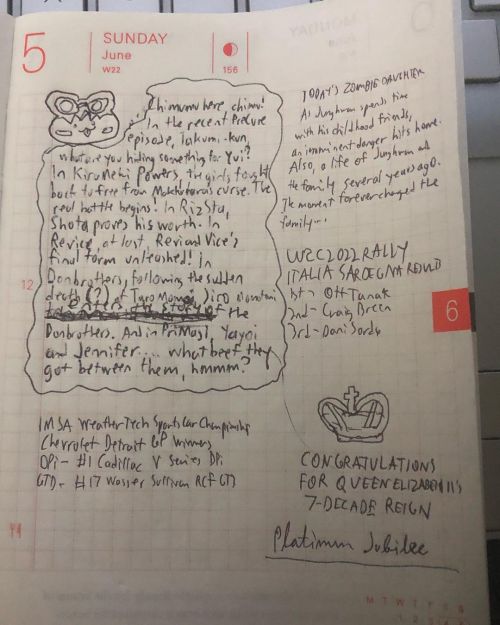 5
SUNDAY
June
W22
156
Chimumu here, chimu!
In the recent Precure
episode, Takumi-kun,
what are you hiding something for Yui?
In KiruMehi Powers, the girls fought
back to free from curse. The
real battle begins! In RizSta,
Shota proves his worth. In
Revice, at last, Revi and Vice's
final form unleashed! In
Donbrothers, following the sudden
death of Taro Momoi, Jiro
of the
Donbrothers. And in PriMagi, Yayoi
and Jennifer.... what beef they
got between them, hmmm?
12
IMSA WeatherTech SportsCar Championship
Chevrolet Detroit GP Winners
DPi - #1 Cadillac V Series DPi
GTD - #17 Vasser Sullivan RCF GTD
TODAY'S ZOMBIE DAUGHTER
As Junghwan spends time
with his childhood friends,
an imminent danger hits home.
Also, a life of Junghwan and
the family several years ago.
The moment forever changed the
family...
WRC 2022 RALLY
ITALIA SARDEGNA RESULT
1st - Ott Tanak
2nd - Craig Breen
3rd - Dani Sordo
6
CONGRATULATIONS
FOR QUEEN ELIZABETH II's
7-DECADE REIGN
Platinum Jubilee
M T W T F S